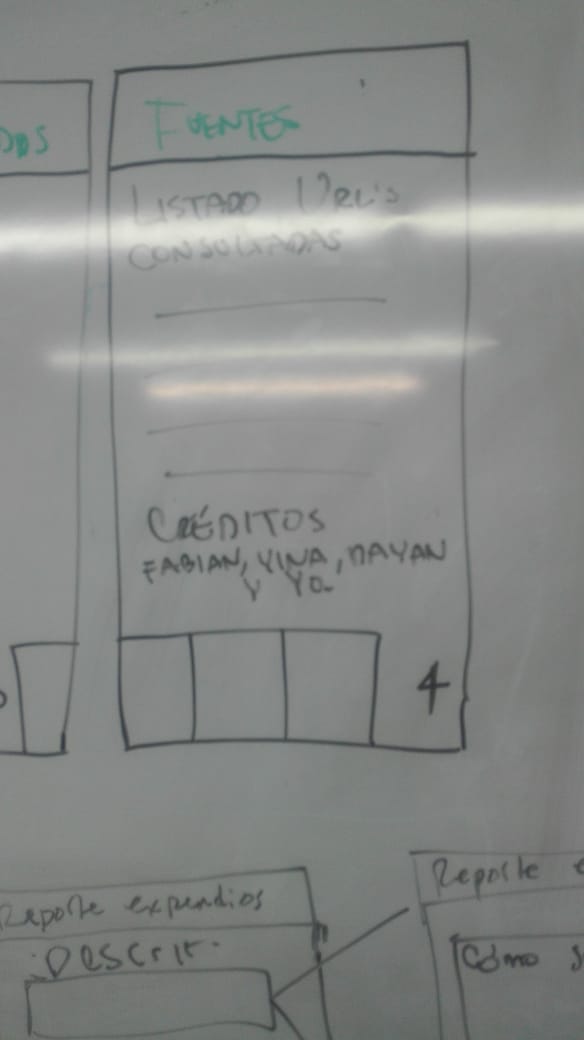 FUENTES
LISTADO URL'S
CONSULTADAS
CRÉDITOS
FABIAN, YINA, DAYAN
Y YO.
4
Reporte expendios
Descrip.
Reporte
Cómo